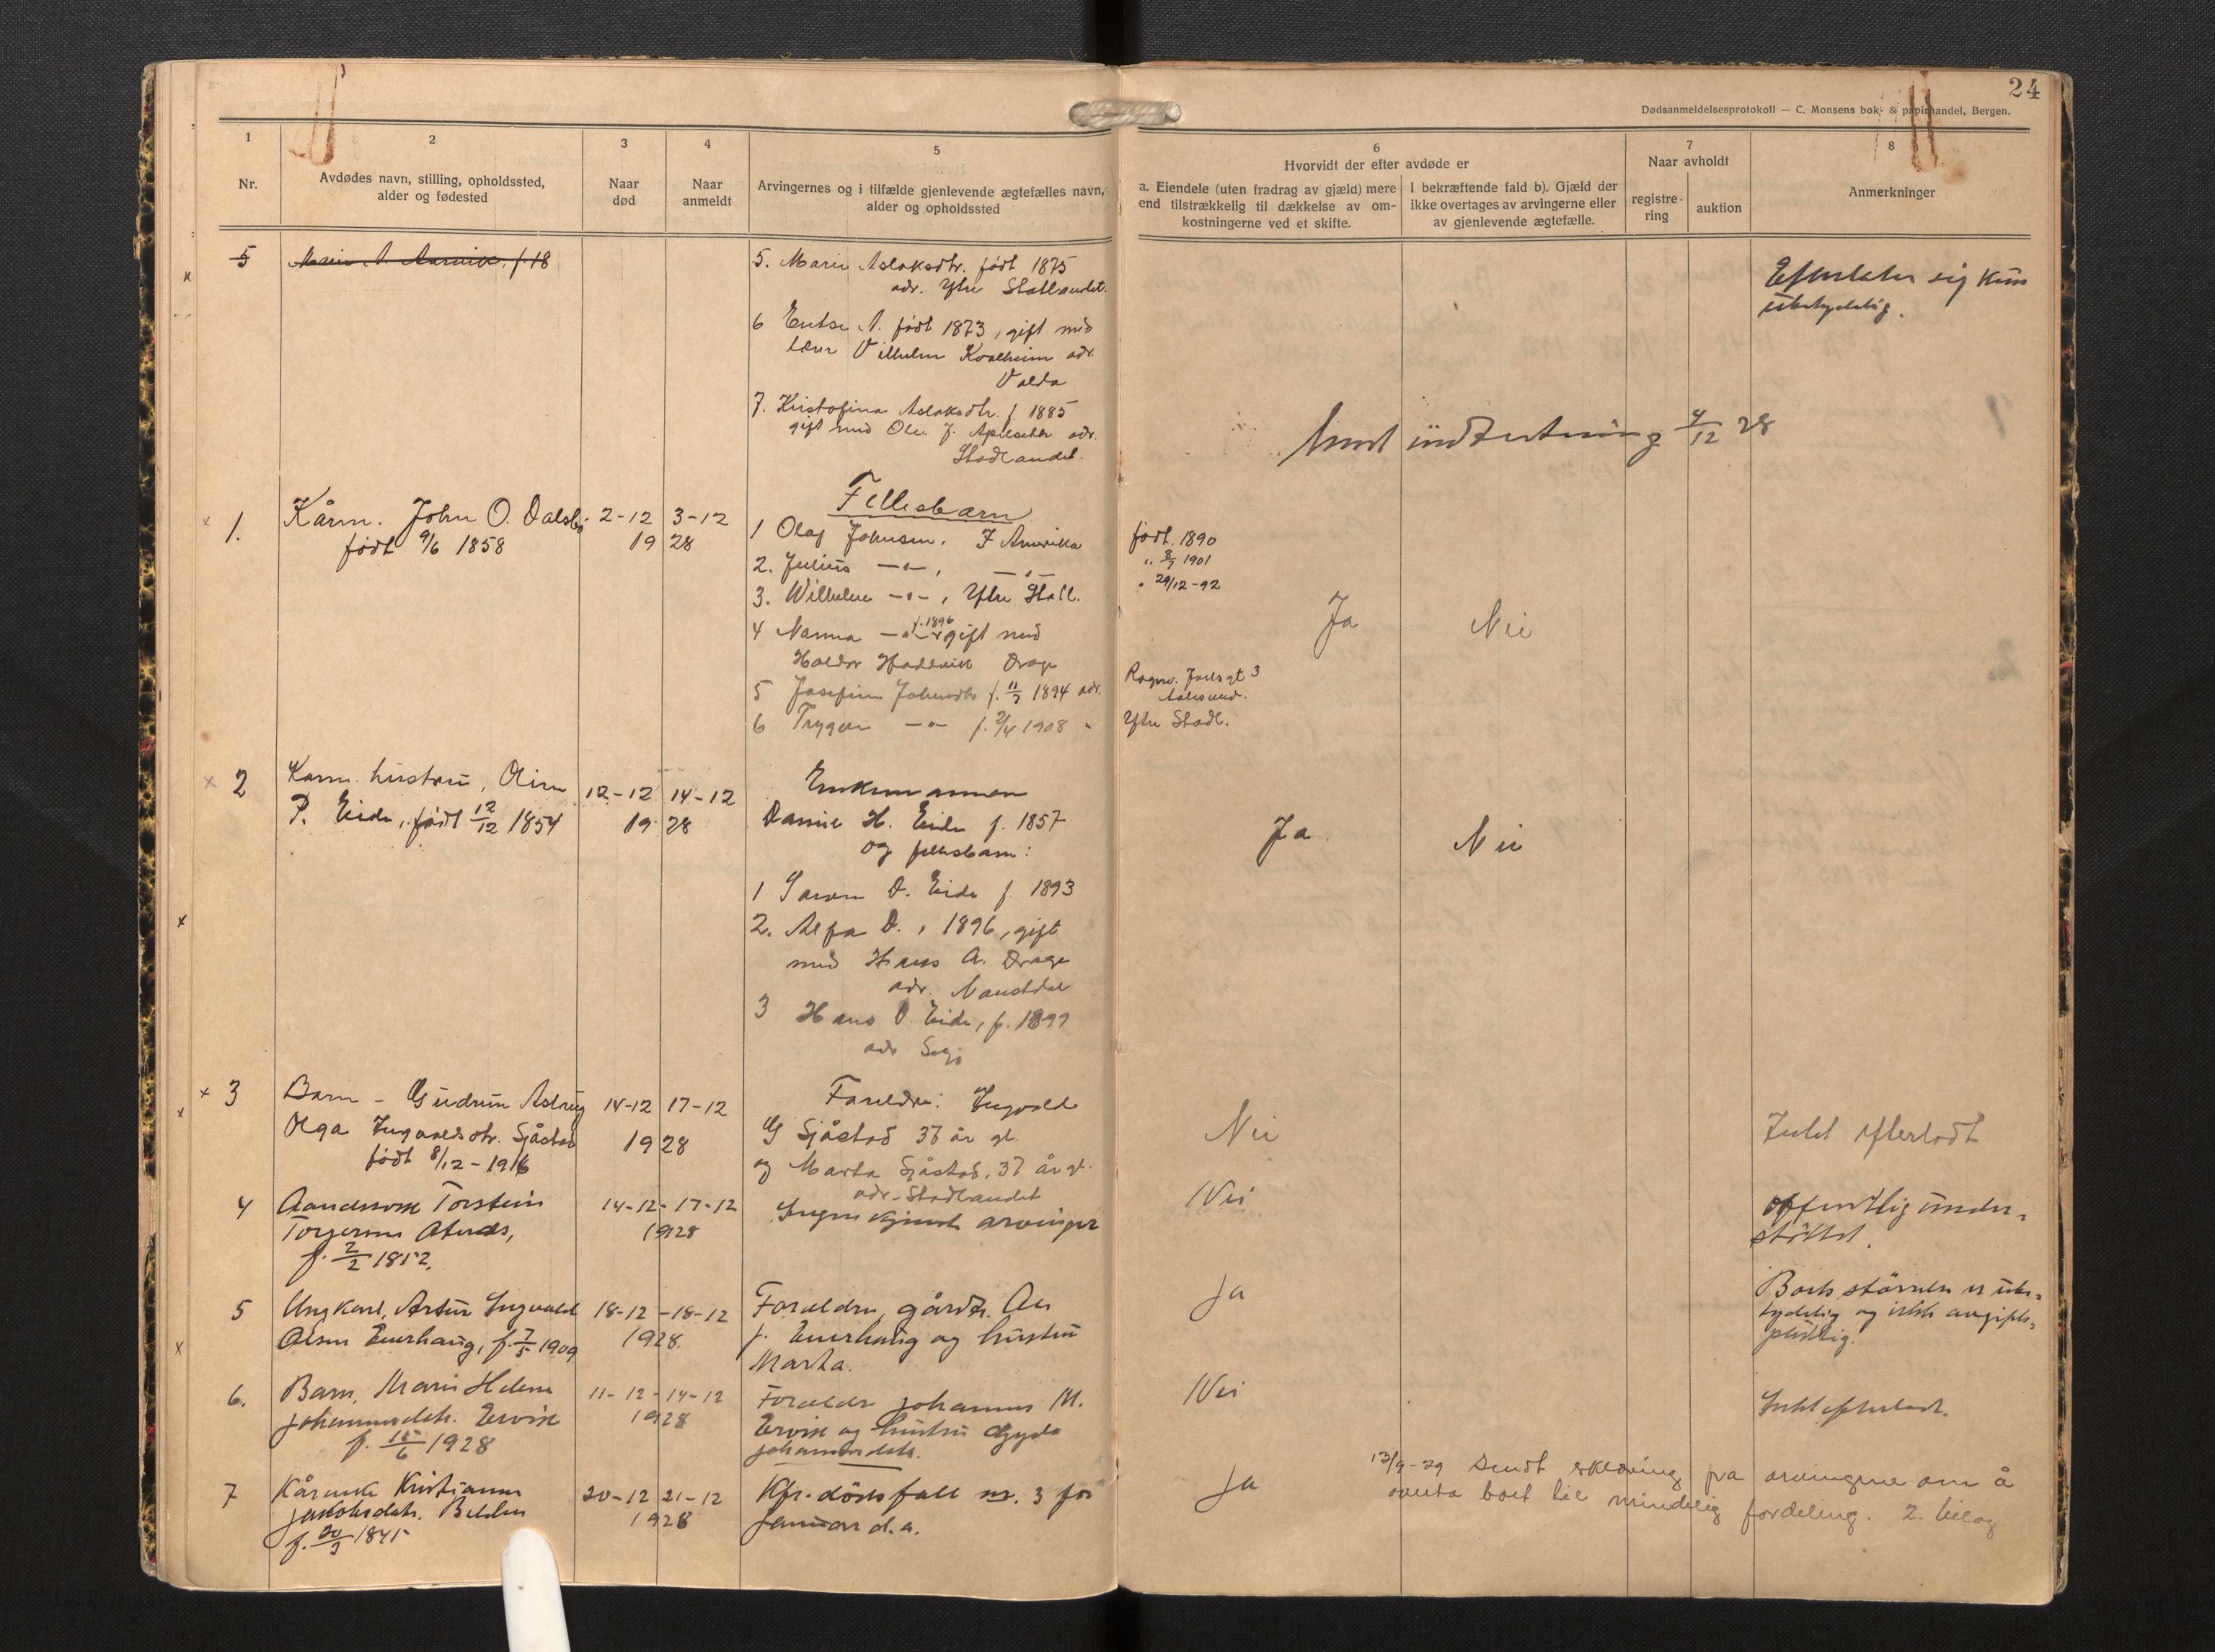 24
Dødsanmeldelsesprotokoll — C. Monsens bok- & papirhandel, Bergen.
1
2
3
4
5
6
7
8
Nr.
Avdødes navn, stilling, opholdssted,
alder og fødested
Naar
død
Naar
anmeldt
Arvingernes og i tilfælde gjenlevende ægtefælles navn,
alder og opholdssted
Hvorvidt der efter avdøde er
a. Eiendele (uten fradrag av gjæld) mere
end tilstrækkelig til dækkelse av om-
kostningerne ved et skifte.
I bekræftende fald b). Gjæld der
ikke overtages av arvingerne eller
av gjenlevende ægtefælle.
Naar avholdt
registre-
ring
auktion
Anmerkninger
5
5. Marie Aslaksdtr. født 1875
adr. Ytre Statlandet.
Efterlater sig kun
ubetydelig.
6 født 1873, gift med
Vilhelm adr.
Volda
7. Kristofina Aslaksdtr. f. 1885
gift med Ole J. adr.
Stadlandet.
Sendt indretning 4/12 28
1. Kårm. John O. Dalsbø 2-12 3-12
født 9/6 1858 19 28
Fellesbarn
1 Olaf Johnsen, I Amerika født 1890
2. Julius —"—, —"— " 8/7 1901
3. Wilhelm —"—, Ytre Statl. " 29/12-92
4 Nanna —"— f. 1896 gift med
Haldor Hoddevik Drage
Ja Nei
5 Josefine Johnsdtr f. 11/7 1894 adr. Ragnv. Jarlsgt 3
Aalesund.
6 Trygve —"— f. 2/4 1908 " Ytre Stadl.
2 Kårm. hustru, Oline 12-12 14-12
P. Eide, født 12/12 1854 19 28
Enkemannen
Daniel H. Eide f. 1857
og fellesbarn:
Ja Nei
1 D. Eide f 1893
2. Alfa D. " 1896, gift
med Hans A. Drage
adr. Naustdal
3 Hans D. Eide, f. 1899
adr Selje
3 Barn - Gudrun Astrug 14-12 17-12
Olga Ingvaldsdtr. Sjåstad 1928
født 8/12-1916
Foreldre: Ingvald
G Sjåstad 37 år gl.
og Marta Sjåstad, 37 år gl.
adr. Stadlandet
Nei
Intet efterladt
4 Torstein 14-12-17-12
1928
f. 2/2 1852.
Ingen kjendte arvinger
Nei
offentlig under-
støttet.
5 Ungkarl, Artur Ingvald 18-12-18-12
Alsen Enerhaug, f. 7/5 1909 1928.
Foreldre, gårdbr. Als
J. Enerhaug og hustru
Marta.
Ja
Boets størrelse er ube-
tydelig og ikke avgifts-
pliktig.
6. Barn, Maria Helene 11-12-14-12
Johannesdtr. Ervik 1928
f. 15/6 1928
Foreldre Johannes M.
Ervik og hustru Gyda
Johannesdtr.
Nei
Intet efterladt.
7 Kårenke Kristianna 20-12 21-12
Jakobsdtr. 1928
f. 20/3 1845
Kfr. dødsfall nr. 3 for
januar d.a.
Ja
13/9-29 Sendt erklæring fra arvingene om å
overta boet til mindelig fordeling. 2. bilag